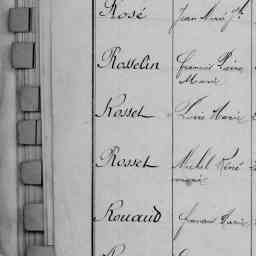 Rosé Jean
Rosselin François Pierre
Marie
Rosset Louis Marie
Rosset Michel René
Rouaud François Marie